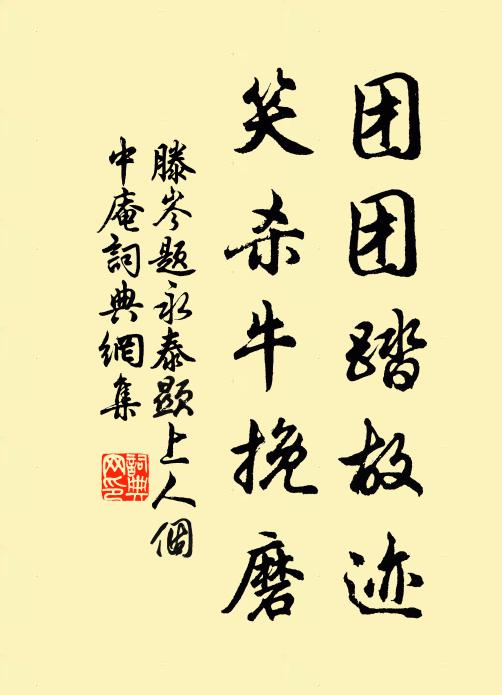 团团踏故迹
笑杀牛挽磨
滕岑题永泰显上人個
中庵詞典網集
詞典
网印